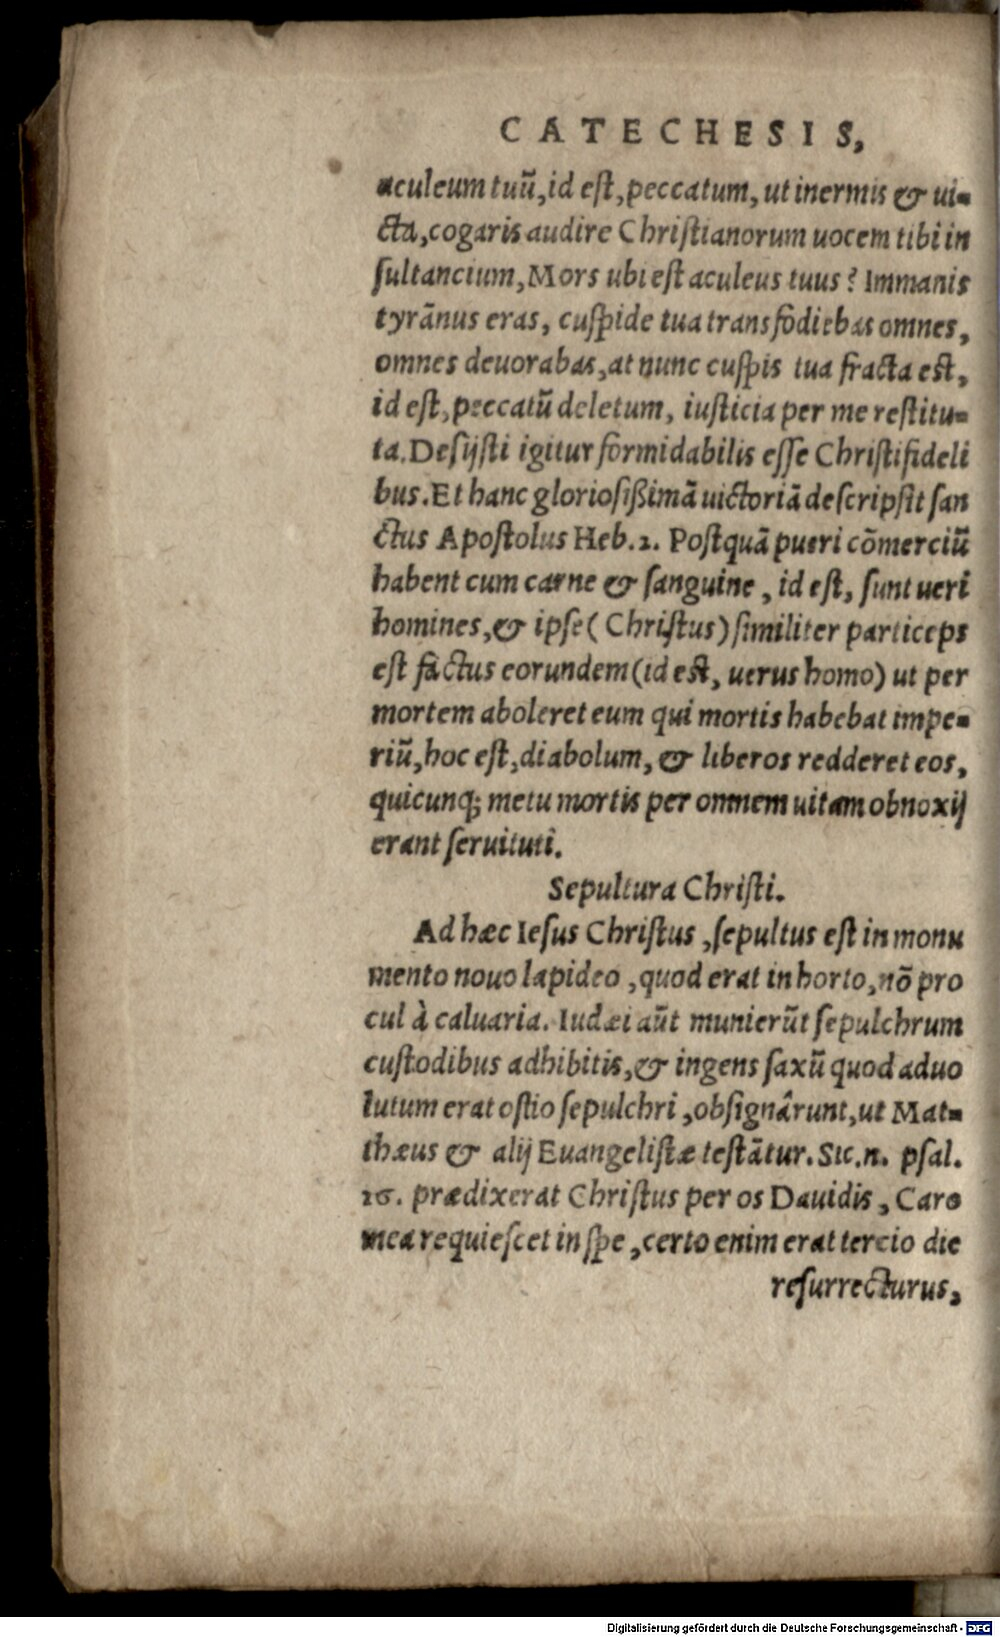 CATECHESIS,
aculeum tuũ, id est, peccatum, ut inermis & ui-
cta, cogaris audire Christianorum uocem tibi in
sultancium, Mors ubi est aculeus tuus? Immanis
tyrãnus eras, cuspide tua transfodiebas omnes,
omnes deuorabas, at nunc cuspis tua fracta est,
id est, peccatũ deletum, iusticia per me restitu-
ta. Desijsti igitur formidabilis esse Christifideli
bus. Et hanc gloriosißimã uictoriã descripsit san
ctus Apostolus Heb. 2. Postquã pueri cõmerciũ
habent cum carne & sanguine, id est, sunt ueri
homines, & ipse (Christus) similiter particeps
est factus eorundem (id est, uerus homo) ut per
mortem aboleret eum qui mortis habebat impe-
riũ, hoc est, diabolum, & liberos redderet eos,
quicunq; metu mortis per omnem uitam obnoxij
erant seruituti.
Sepultura Christi.
Ad hæc Iesus Christus, sepultus est in monu
mento nouo lapideo, quod erat in horto, nõ pro
cul à caluaria. Iudæi aũt munierũt sepulchrum
custodibus adhibitis, & ingens saxũ quod aduo
lutum erat ostio sepulchri, obsignârunt, ut Mat-
thæus & alij Euangelistæ testãtur. Sic.n. psal.
16. prædixerat Christus per os Dauidis, Caro
mea requiescet in spe, certo enim erat tercio die
resurrecturus,
Digitalisierung gefördert durch die Deutsche Forschungsgemeinschaft - DFG